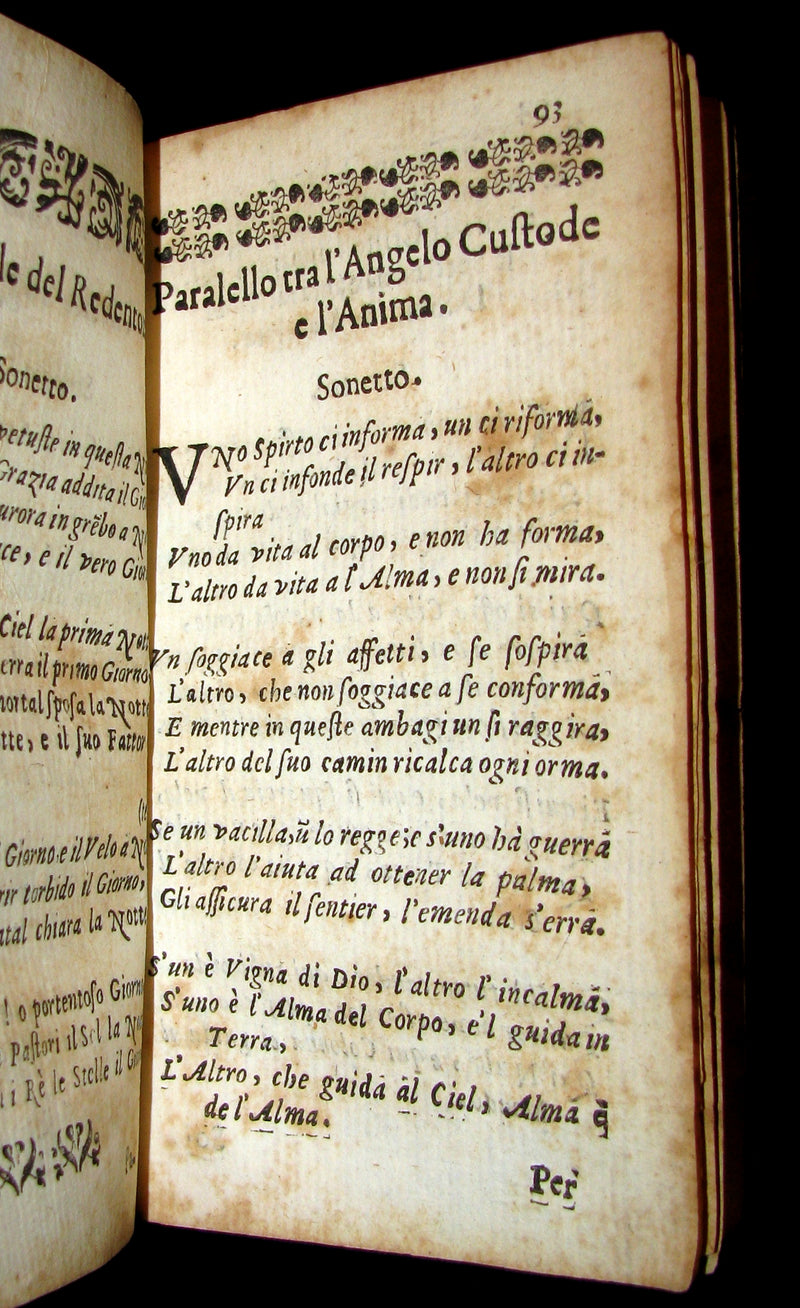 del Redento
Sonetto.
in queſta
Grazia addita il
in grẽbo a
e il vero
Ciel la prima
il primo Giorno
ſpoſa la Nott
e il ſuo Fattor
Giorno e il Velo a
torbido il Giorno,
chiara la Nott
! o portentoſo Giorn
Paſtori il Sol la
i Rè le Stelle il
93
Paralello tra l'Angelo Cuſtode
e l'Anima.
Sonetto.
VNo Spirto ci informa, un ci riforma,
Vn ci infonde il reſpir, l'altro ci in-
ſpira
Vno da vita al corpo, e non ha forma,
L'altro da vita a l'Alma, e non ſi mira.
Vn ſoggiace a gli affetti, e ſe ſoſpira
L'altro, che non ſoggiace a ſe conforma,
E mentre in queſte ambagi un ſi raggira,
L'altro del ſuo camin ricalca ogni orma.
Se un vacilla, ũ lo regge; e s'uno hà guerra
L'altro l'aiuta ad ottener la palma,
Gli aſſicura il ſentier, l'emenda s'erra.
S'un è Vigna di Dio, l'altro l'incalma,
S'uno è l'Alma del Corpo, e'l guida in
Terra,
L'Altro, che guida al Ciel, Alma è
de l'Alma.
Per